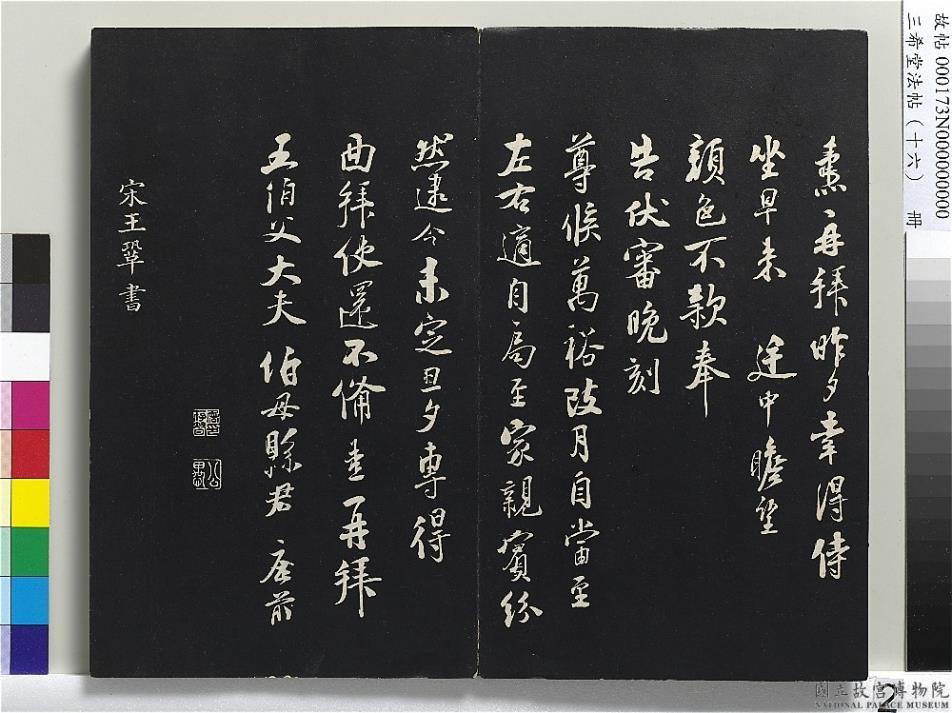 故帖 000173N000000000
三希堂法帖(十六) 冊
再拜昨夕幸得侍
坐早來 廷中瞻望
顏色不款奉
告伏審晚刻
尊候萬裕改月自當至
左右適自局至家親賓紛
然逮今未定旦夕專得
面拜使還不備 再拜
五伯父大夫 伯母縣君 座前
宋王鞏書
2
國立故宮博物院
NATIONAL PALACE MUSEUM